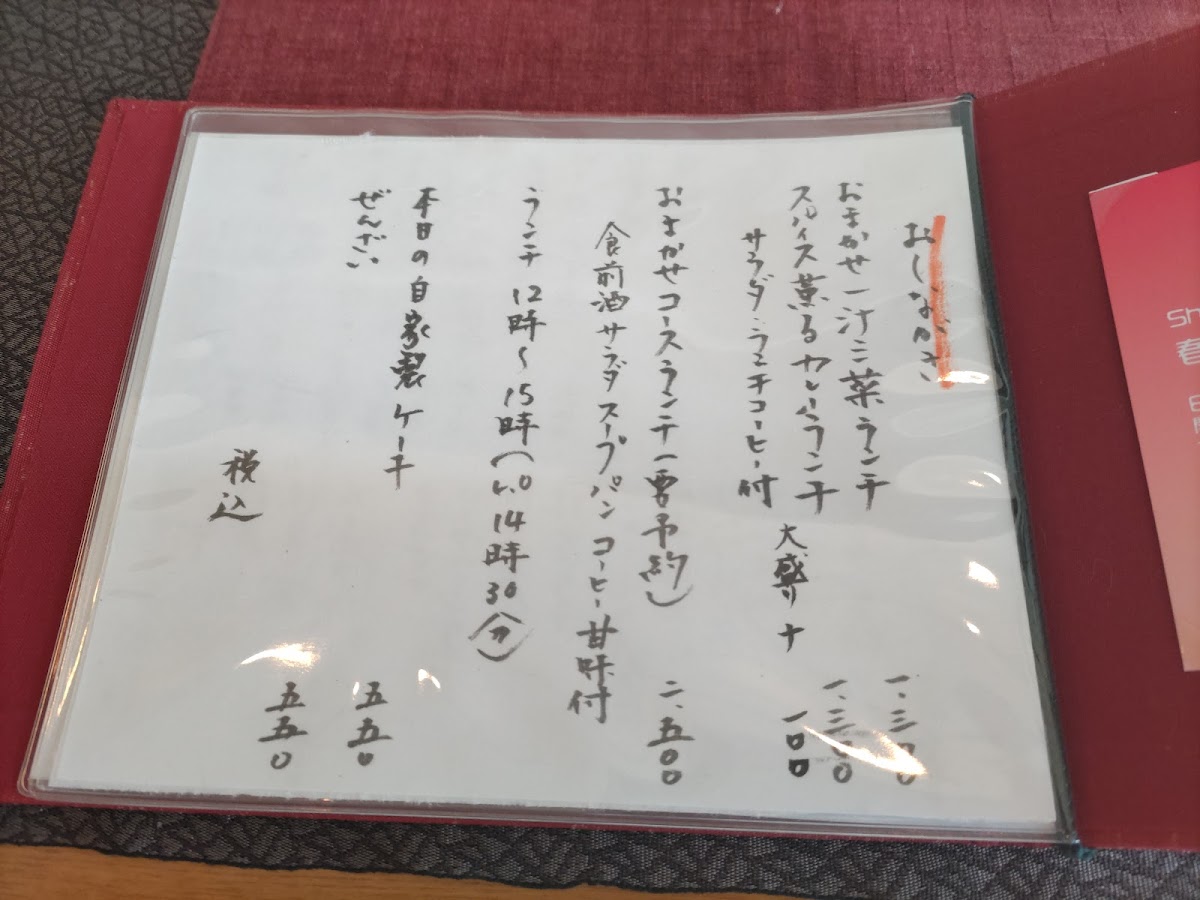 おしながき
おまかせ一汁二菜ランチ 一.三〇〇
スパイス薫るカレーランチ 一.三〇〇
サラダ.ミニチコーヒー付 大盛り+ 一〇〇
おまかせコースランチ(要予約) 二.五〇〇
食前酒サラダスープパンコーヒー甘味付
ランチ 12時〜15時(L.O 14時30分)
本日の自家製ケーキ 五五〇
ぜんざい 五五〇
税込
Sh
春